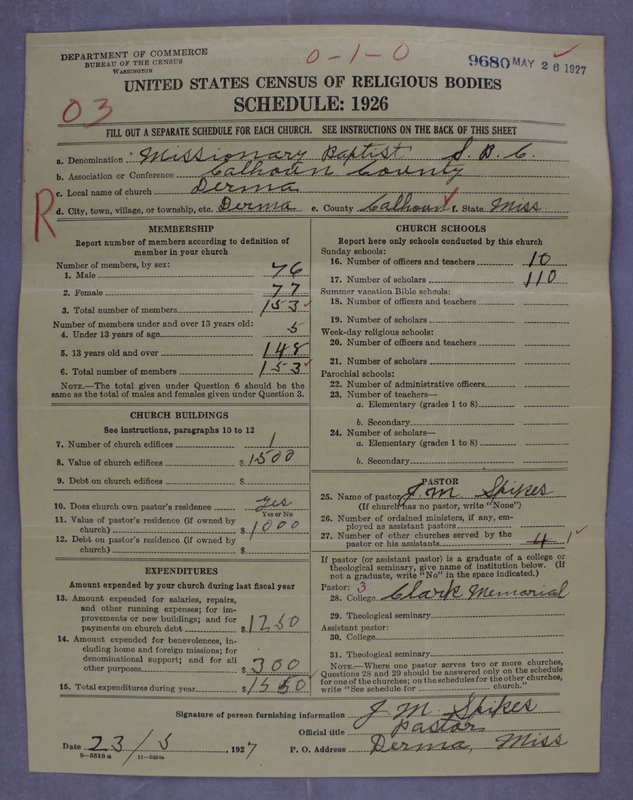 DEPARTMENT OF COMMERCE
BUREAU OF THE CENSUS
WASHINGTON
0-1-0
9680 MAY 26 1927
UNITED STATES CENSUS OF RELIGIOUS BODIES
SCHEDULE: 1926
03
FILL OUT A SEPARATE SCHEDULE FOR EACH CHURCH. SEE INSTRUCTIONS ON THE BACK OF THIS SHEET
a. Denomination Missionary Baptist S. B. C.
b. Association or Conference Calhoun County
c. Local name of church Derma
R
d. City, town, village, or township, etc. Derma e. County Calhoun f. State Miss
MEMBERSHIP
Report number of members according to definition of
member in your church
Number of members, by sex:
1. Male 76
2. Female 77
3. Total number of members 153
Number of members under and over 13 years old:
4. Under 13 years of age 5
5. 13 years old and over 148
6. Total number of members 153
NOTE.—The total given under Question 6 should be the
same as the total of males and females given under Question 3.
CHURCH BUILDINGS
See instructions, paragraphs 10 to 12
7. Number of church edifices 1
8. Value of church edifices $1500
9. Debt on church edifices $
10. Does church own pastor's residence yes
Yes or No
11. Value of pastor's residence (if owned by
church) $1000
12. Debt on pastor's residence (if owned by
church) $
EXPENDITURES
Amount expended by your church during last fiscal year
13. Amount expended for salaries, repairs,
and other running expenses; for im-
provements or new buildings; and for
payments on church debt $1250
14. Amount expended for benevolences, in-
cluding home and foreign missions; for
denominational support; and for all
other purposes $300
15. Total expenditures during year $1550
CHURCH SCHOOLS
Report here only schools conducted by this church
Sunday schools:
16. Number of officers and teachers 10
17. Number of scholars 110
Summer vacation Bible schools:
18. Number of officers and teachers
19. Number of scholars
Week-day religious schools:
20. Number of officers and teachers
21. Number of scholars
Parochial schools:
22. Number of administrative officers
23. Number of teachers—
a. Elementary (grades 1 to 8)
b. Secondary
24. Number of scholars—
a. Elementary (grades 1 to 8)
b. Secondary
PASTOR
25. Name of pastor J. M. Spikes
(If church has no pastor, write "None")
26. Number of ordained ministers, if any, em-
ployed as assistant pastors
27. Number of other churches served by the
pastor or his assistants 4 1
If pastor (or assistant pastor) is a graduate of a college or
theological seminary, give name of institution below. (If
not a graduate, write "No" in the space indicated.)
Pastor: 3
28. College Clark Memorial
29. Theological seminary
Assistant pastor:
30. College
31. Theological seminary
NOTE.—Where one pastor serves two or more churches,
Questions 28 and 29 should be answered only on the schedule
for one of the churches; on the schedules for the other churches,
write "See schedule for church."
Signature of person furnishing information J. M. Spikes
Official title Pastor
Date 23/5, 1927 P. O. Address Derma, Miss
8-5518a 11-8654a